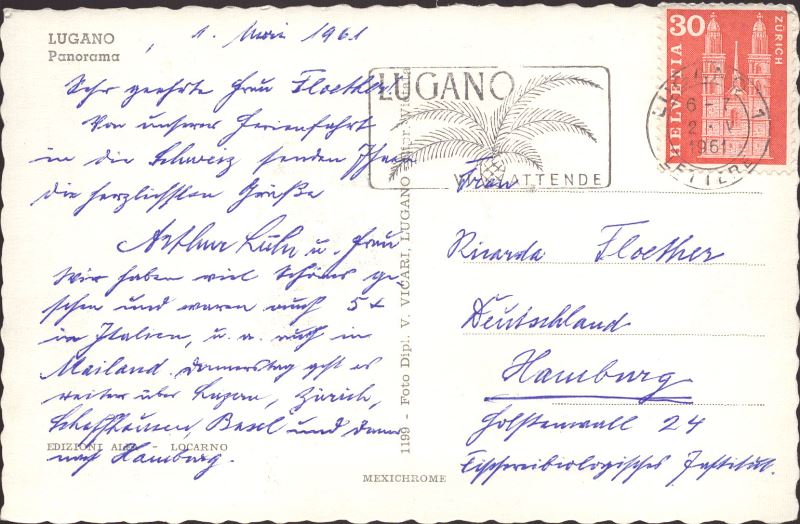 LUGANO
Panorama
1. Mai 1961
Sehr geehrte Frau Floether!
Von unserer Ferienfahrt
in die Schweiz senden Ihnen
die herzlichsten Grüße
Arthur Lühr u. Frau
Wir haben viel Schönes ge
sehen und waren auch 5x
in Italien, u. a. auch in
Mailand. Donnerstag geht es
weiter über Luzern, Zürich,
Schaffhausen, Basel und dann
nach Hamburg.
EDIZIONI ALFA - LOCARNO
MEXICHROME
1199 - Foto Dipl. V. VICARI, LUGANO
LUGANO
VI ATTENDE
LUGANO 1
6-7
2.V
1961
LETTERE
30
HELVETIA
ZÜRICH
Frau
Ricarda Floether
Deutschland
Hamburg
Holstenwall 24
Fischereibiologisches Institut.